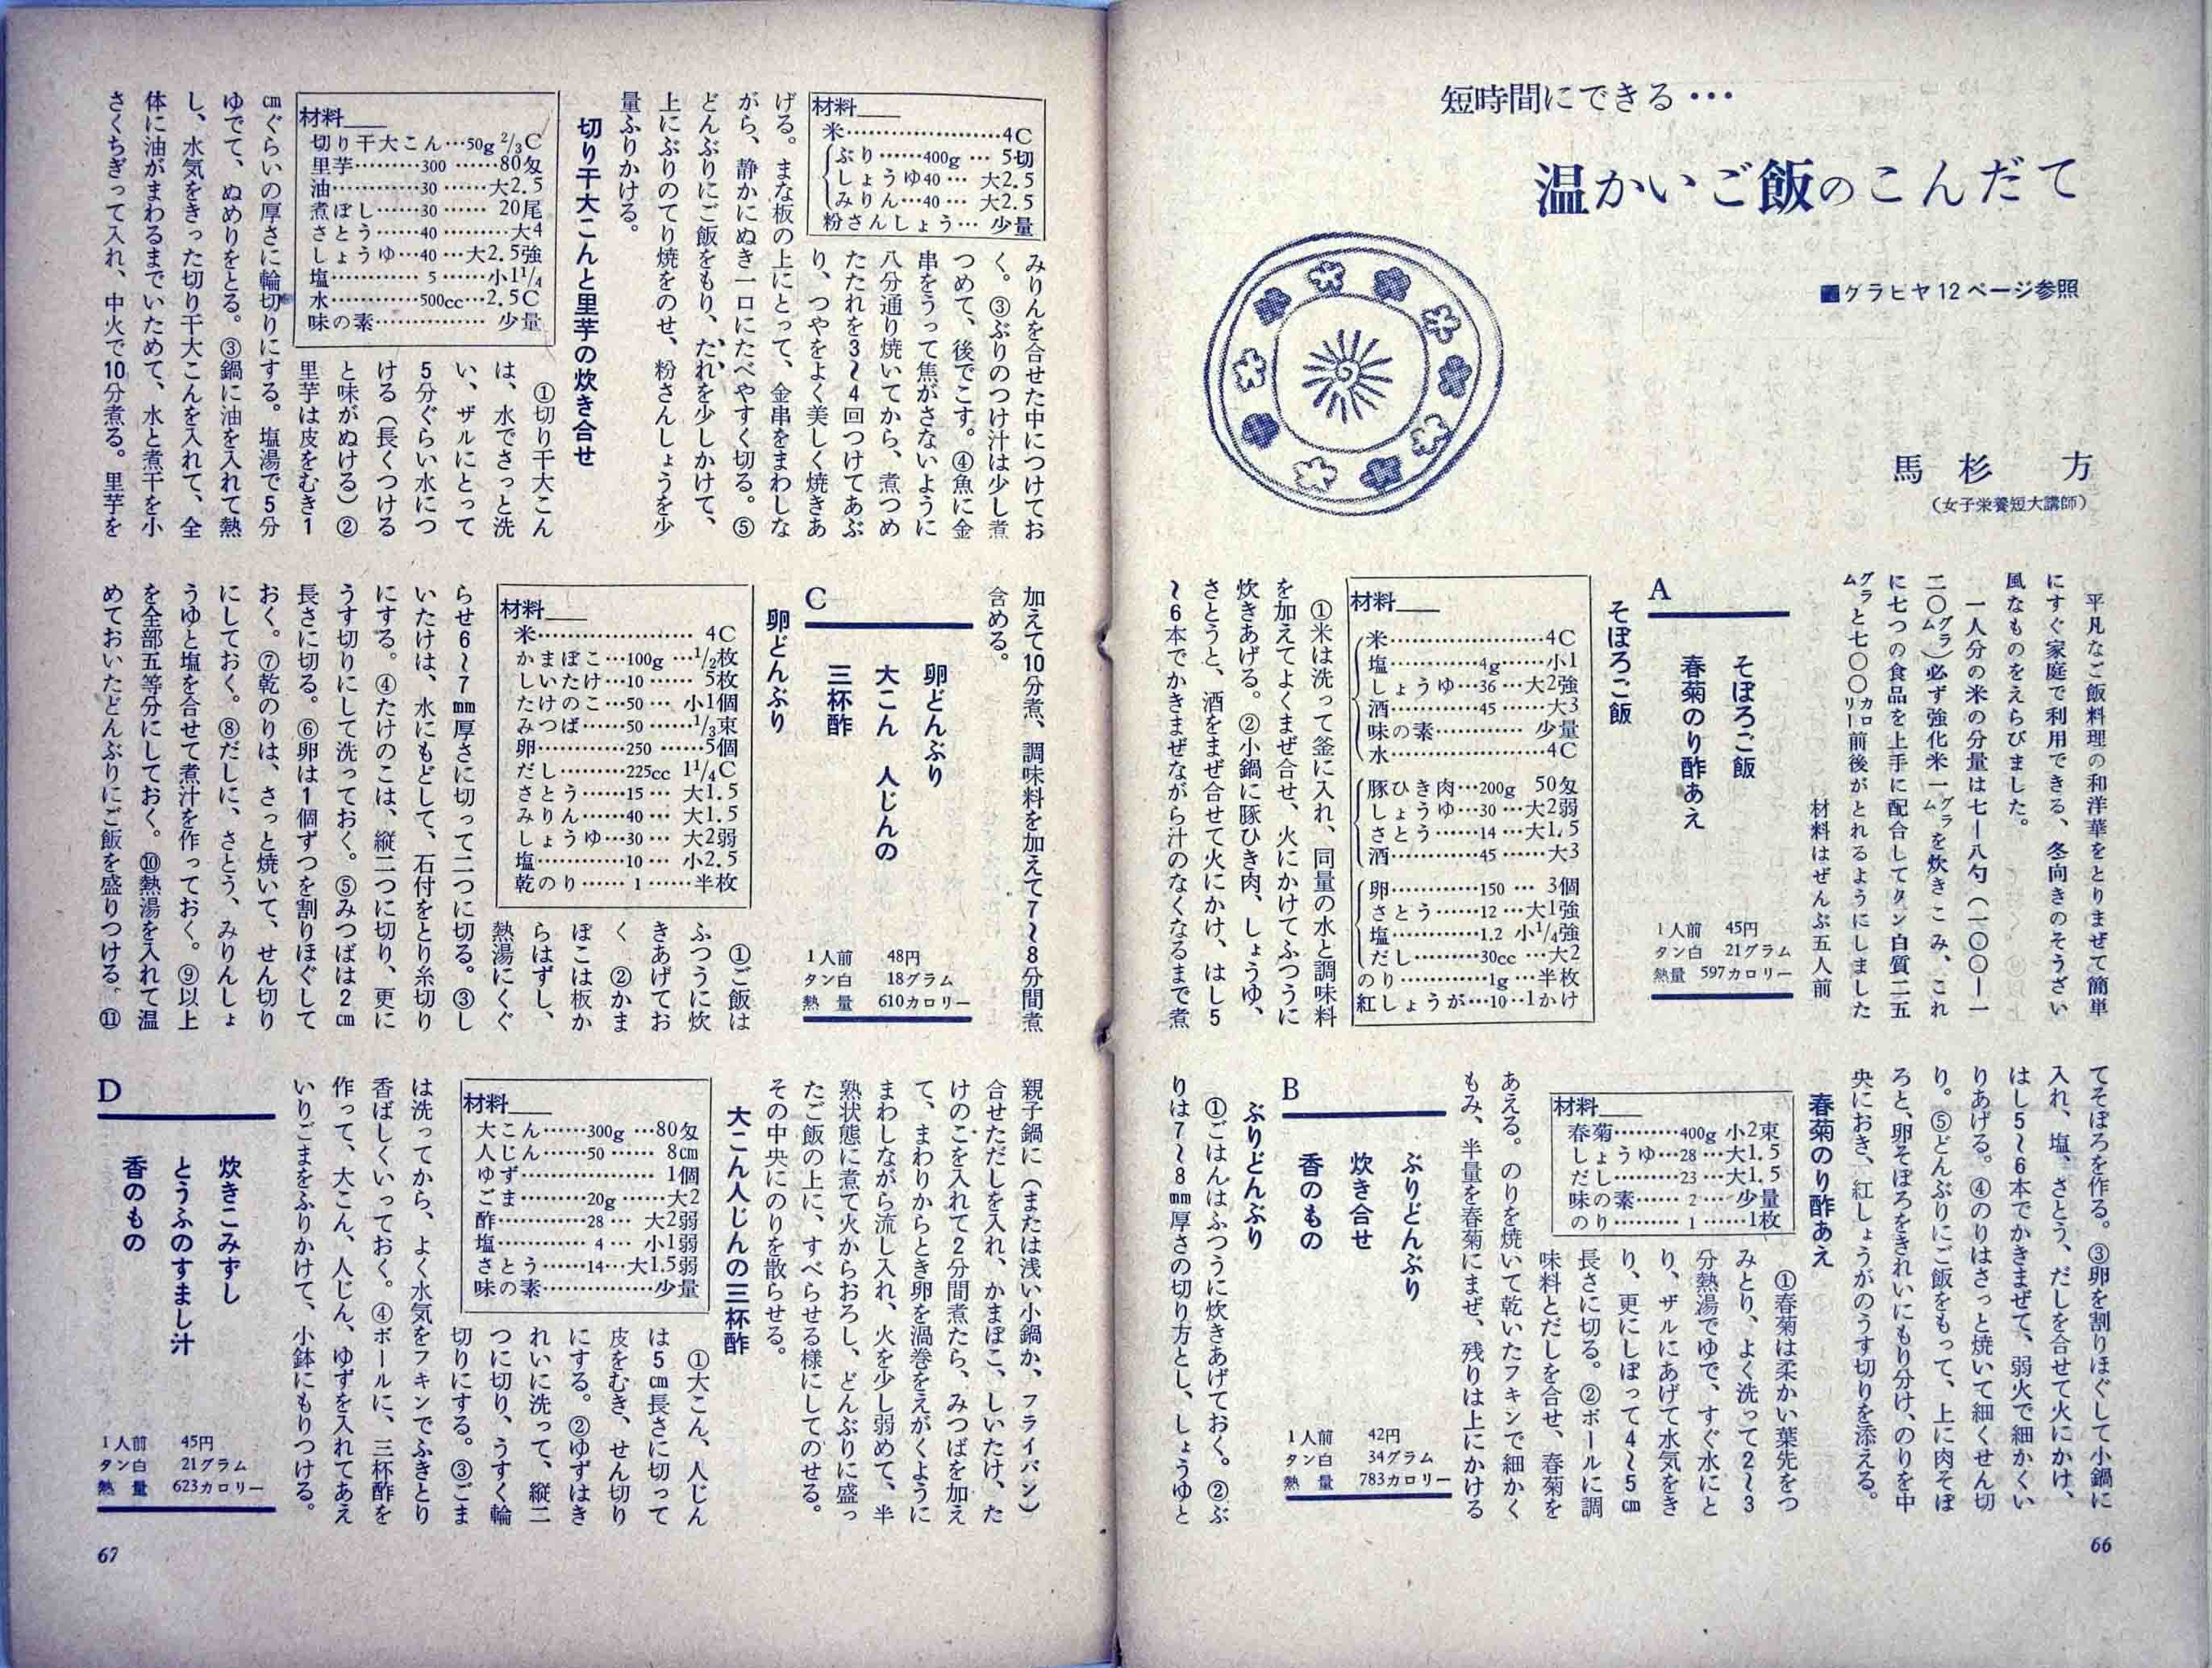 短時間にできる・・・
温かいご飯のこんだて
■グラビヤ12ページ参照
馬杉　方
（女子栄養短大講師）
平凡なご飯料理の和洋華をとりまぜて簡単
にすぐ家庭で利用できる、冬向きのそうざい
風なものをえらびました。
一人分の米の分量は七ー八勺（一〇〇ー一
二〇グラム）必ず強化米一グラムを炊きこみ、これ
に七つの食品を上手に配合してタン白質二五
グラムと七〇〇カロリー前後がとれるようにしました
材料はぜんぶ五人前
A
そぼろご飯
春菊のり酢あえ
1人前　45円
タン白　21グラム
熱量　597カロリー
そぼろご飯
材料
米……4C
塩……4g……小1
しょうゆ…36…大2強
酒……45……大3
味の素……少量
水……4C
豚ひき肉…200g　50匁
しょうゆ…30…大2弱
さとう……14…大1.5
酒……45……大3
卵……150…3個
さとう……12…大1強
塩……1.2　小1/4強
だし……30cc…大2
のり……1g…半枚
紅しょうが…10‥1かけ
①米は洗って釜に入れ、同量の水と調味料
を加えてよくまぜ合せ、火にかけてふつうに
炊きあげる。②小鍋に豚ひき肉、しょうゆ、
さとうと、酒をまぜ合せて火にかけ、はし5
〜6本でかきまぜながら汁のなくなるまで煮
てそぼろを作る。③卵を割りほぐして小鍋に
入れ、塩、さとう、だしを合せて火にかけ、
はし5〜6本でかきまぜて、弱火で細かくい
りあげる。④のりはさっと焼いて細くせん切
り。⑤どんぶりにご飯をもって、上に肉そぼ
ろと、卵そぼろをきれいにもり分け、のりを中
央におき、紅しょうがのうす切りを添える。
春菊のり酢あえ
材料
春菊………400g　小2束
しょうゆ…28…大1.5
だし………23…大1.5
味の素……2…少量
のり………1……1枚
①春菊は柔かい葉先をつ
みとり、よく洗って2〜3
分熱湯でゆで、すぐ水にと
り、ザルにあげて水気をき
り、更にしぼって4〜5㎝
長さに切る。②ボールに調
味料とだしを合せ、春菊を
あえる。のりを焼いて乾いたフキンで細かく
もみ、半量を春菊にまぜ、残りは上にかける
B
ぶりどんぶり
炊き合せ
香のもの
1人前　42円
タン白　34グラム
熱量　783カロリー
ぶりどんぶり
①ごはんはふつうに炊きあげておく。②ぶ
りは7〜8㎜厚さの切り方とし、しょうゆと
66
材料
米……4C
ぶり……400g…5切
しょうゆ40…大2.5
みりん…40…大2.5
粉さんしょう…少量
みりんを合せた中につけてお
く。③ぶりのつけ汁は少し煮
つめて、後でこす。④魚に金
串をうって焦がさないように
八分通り焼いてから、煮つめ
たたれを3〜4回つけてあぶ
り、つやをよく美しく焼きあ
げる。まな板の上にとって、金串をまわしな
がら、静かにぬき一口にたべやすく切る。⑤
どんぶりにご飯をもり、たれを少しかけて、
上にぶりのてり焼をのせ、粉さんしょうを少
量ふりかける。
切り干大こんと里芋の炊き合せ
材料
切り干大こん…50g 2/3C
里芋………300……80匁
油…………30……大2.5
煮ぼし……30……20尾
さとう……40………大4
しょうゆ…40…大2.5強
塩…………5……小1 1/4
水…………500cc…2.5C
味の素……少量
①切り干大こん
は、水でさっと洗
い、ザルにとって
5分ぐらい水につ
ける（長くつける
と味がぬける）②
里芋は皮をむき1
㎝ぐらいの厚さに輪切りにする。塩湯で5分
ゆでて、ぬめりをとる。③鍋に油を入れて熱
し、水気をきった切り干大こんを入れて、全
体に油がまわるまでいためて、水と煮干を小
さくちぎって入れ、中火で10分煮る。里芋を
加えて10分煮、調味料を加えて7〜8分間煮
含める。
C
卵どんぶり
大こん　人じんの
三杯酢
1人前　48円
タン白　18グラム
熱量　610カロリー
卵どんぶり
材料
米……4C
かまぼこ…100g…1/2枚
しいたけ…10……5枚
たけのこ…50…小1個
みつば……50……1/3束
卵…………250……5個
だし………225cc 1 1/4C
さとう……15…大1.5
みりん……40…大1.5
しょうゆ…30…大2弱
塩…………10…小2.5
乾のり……1……半枚
①ご飯は
ふつうに炊
きあげてお
く　②かま
ぼこは板か
らはずし、
熱湯にくぐ
らせ6〜7㎜厚さに切って二つに切る。③し
いたけは、水にもどして、石付をとり糸切り
にする。④たけのこは、縦二つに切り、更に
うす切りにして洗っておく。⑤みつばは2㎝
長さに切る。⑥卵は1個ずつを割りほぐして
おく。⑦乾のりは、さっと焼いて、せん切り
にしておく。⑧だしに、さとう、みりんしょ
うゆと塩を合せて煮汁を作っておく。⑨以上
を全部五等分にしておく。⑩熱湯を入れて温
めておいたどんぶりにご飯を盛りつける。⑪
親子鍋に（または浅い小鍋か、フライパン）
合せただしを入れ、かまぼこ、しいたけ、た
けのこを入れて2分間煮たら、みつばを加え
て、まわりからとき卵を渦巻をえがくように
まわしながら流し入れ、火を少し弱めて、半
熟状態に煮て火からおろし、どんぶりに盛っ
たご飯の上に、すべらせる様にしてのせる。
その中央にのりを散らせる。
大こん人じんの三杯酢
材料
大こん……300g…80匁
人じん……50……8㎝
ゆず………………1個
ごま………20g……大2
酢…………28…大2弱
塩…………4…小1弱
さとう……14…大1.5弱
味の素……少量
①大こん、人じん
は5㎝長さに切って
皮をむき、せん切り
にする。②ゆずはき
れいに洗って、縦二
つに切り、うすく輪
切りにする。③ごま
は洗ってから、よく水気をフキンでふきとり
香ばしくいっておく。④ボールに、三杯酢を
作って、大こん、人じん、ゆずを入れてあえ
いりごまをふりかけて、小鉢にもりつける。
D
炊きこみずし
とうふのすまし汁
香のもの
1人前　45円
タン白　21グラム
熱量　623カロリー
67